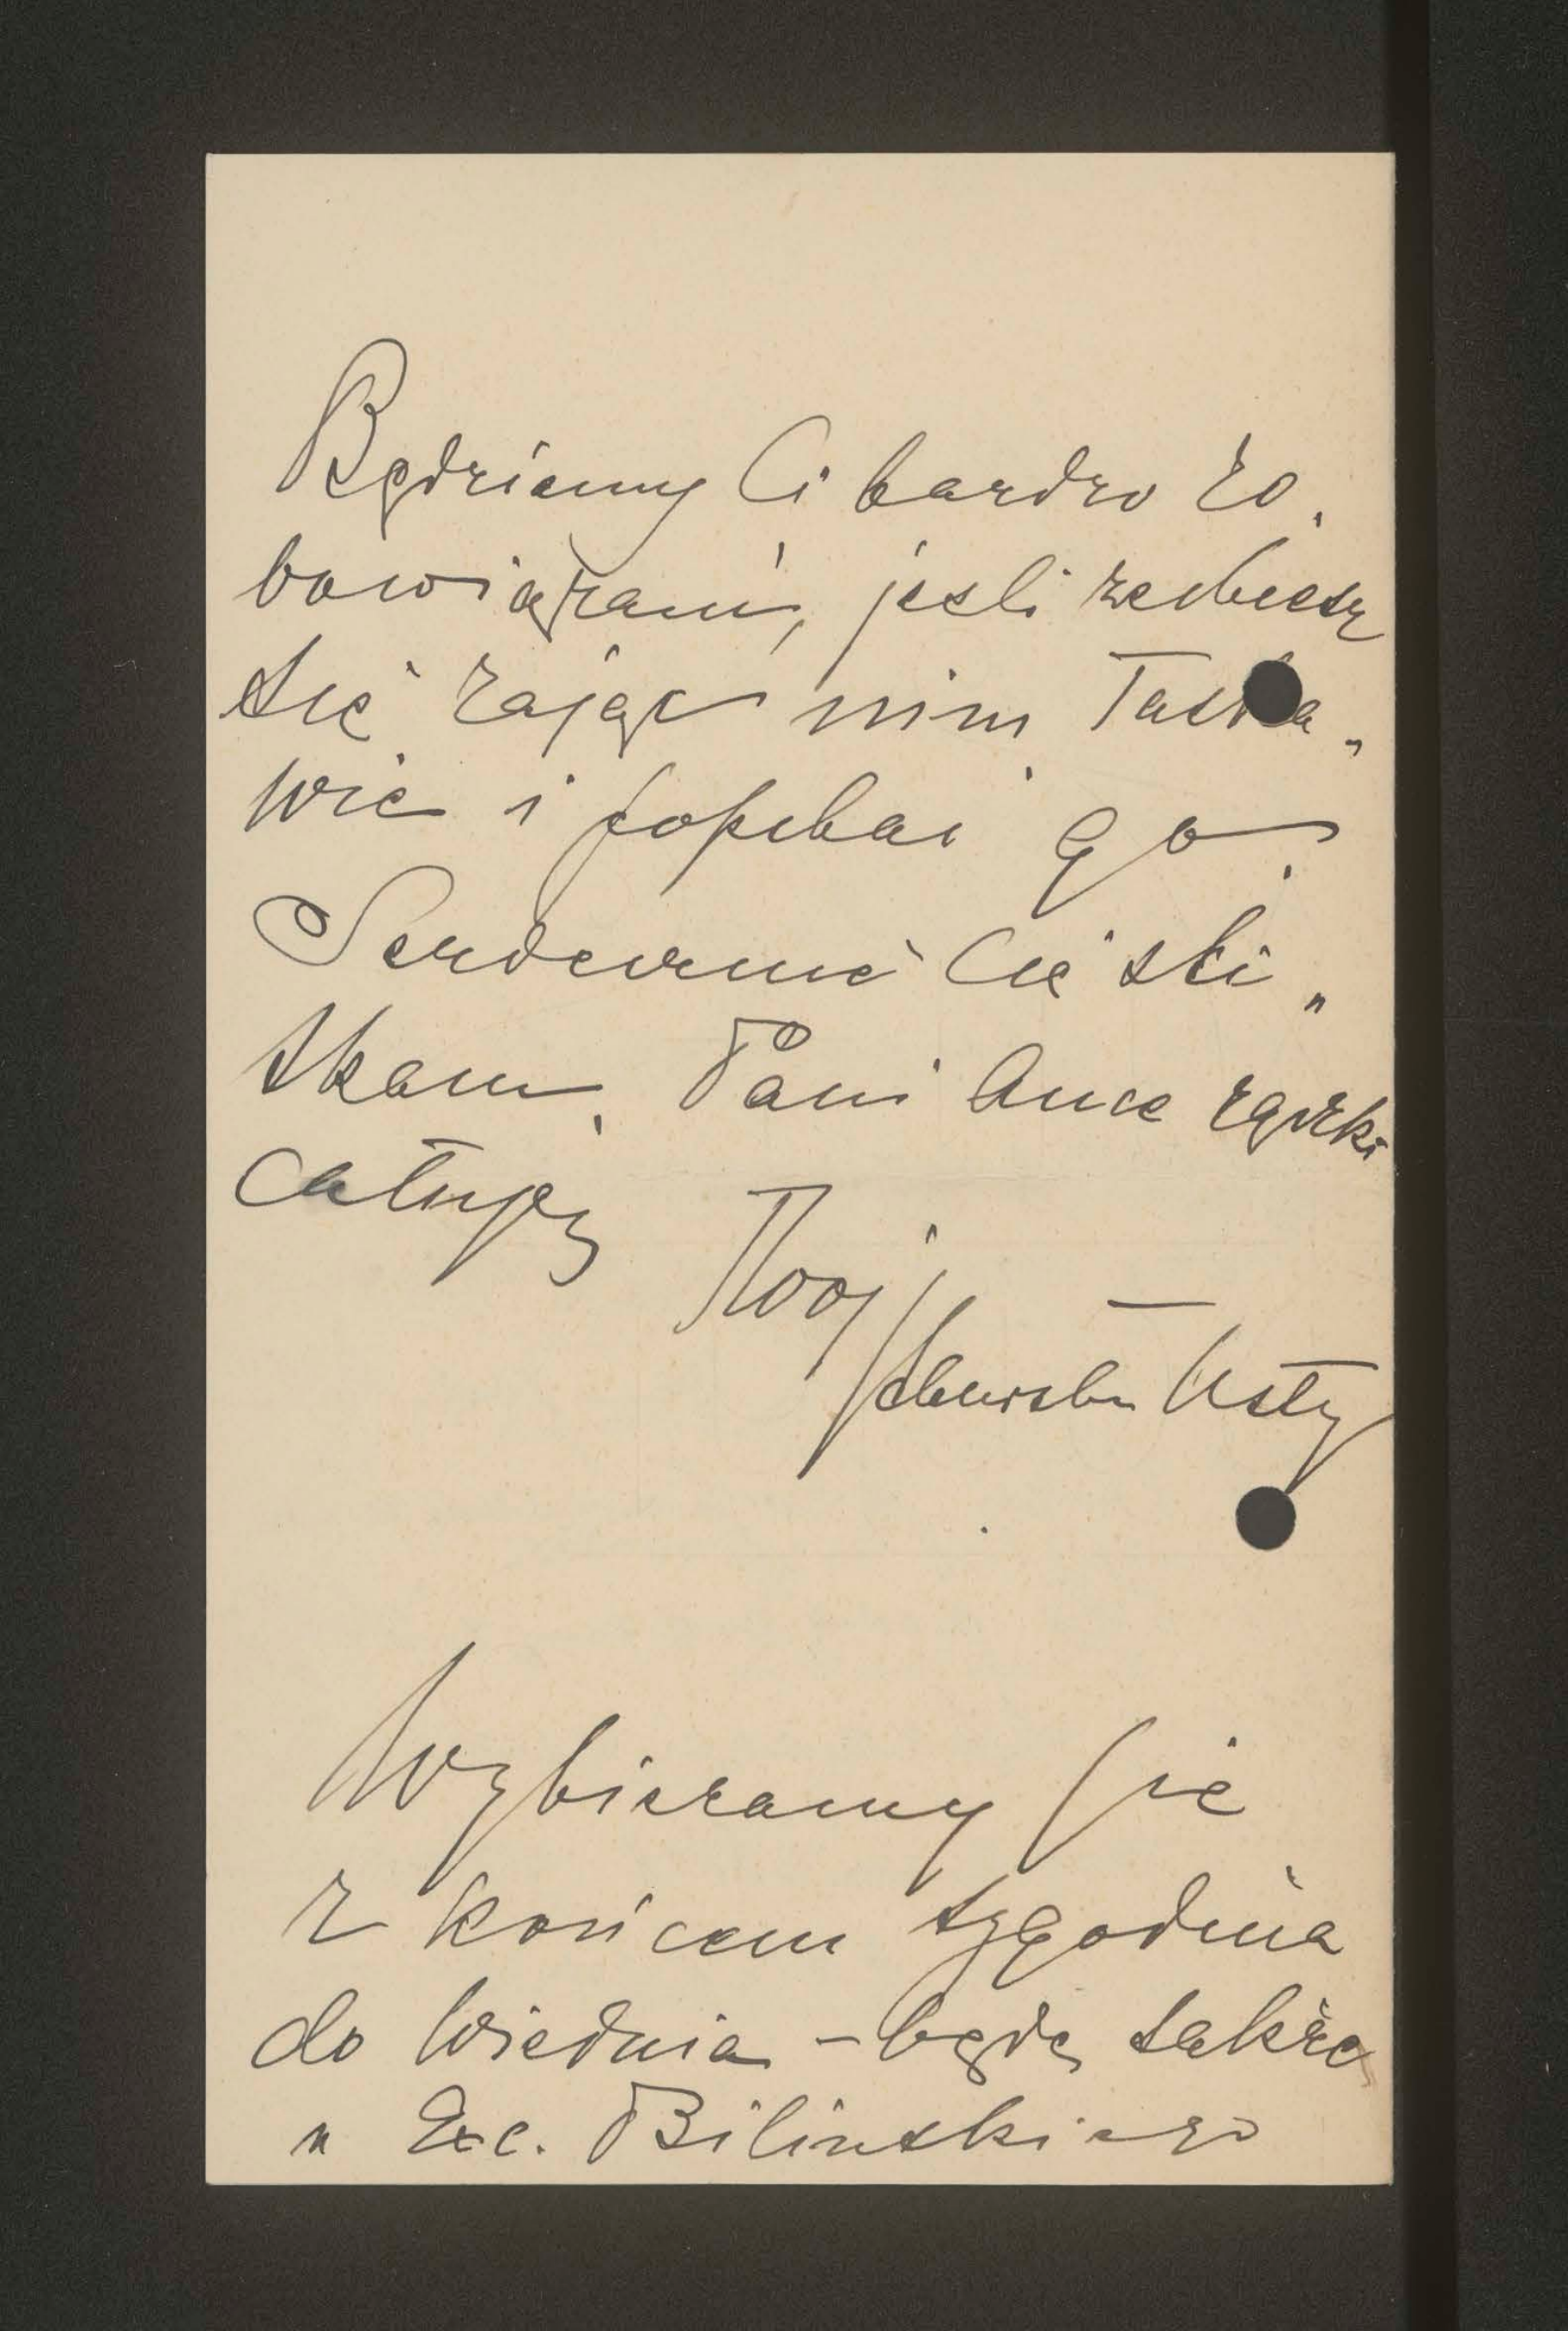 Będziemy Ci bardzo zo„
bowiązani, jeśli zechcesz
się zająć nim łaska„
wie i popchać go.
Serdecznie Cię ści„
skam. Pani Ance rączki
całuję
Twój
Wybieramy się
z końcem tygodnia
do Wiednia – będę także
u Exc. Bilinskiego